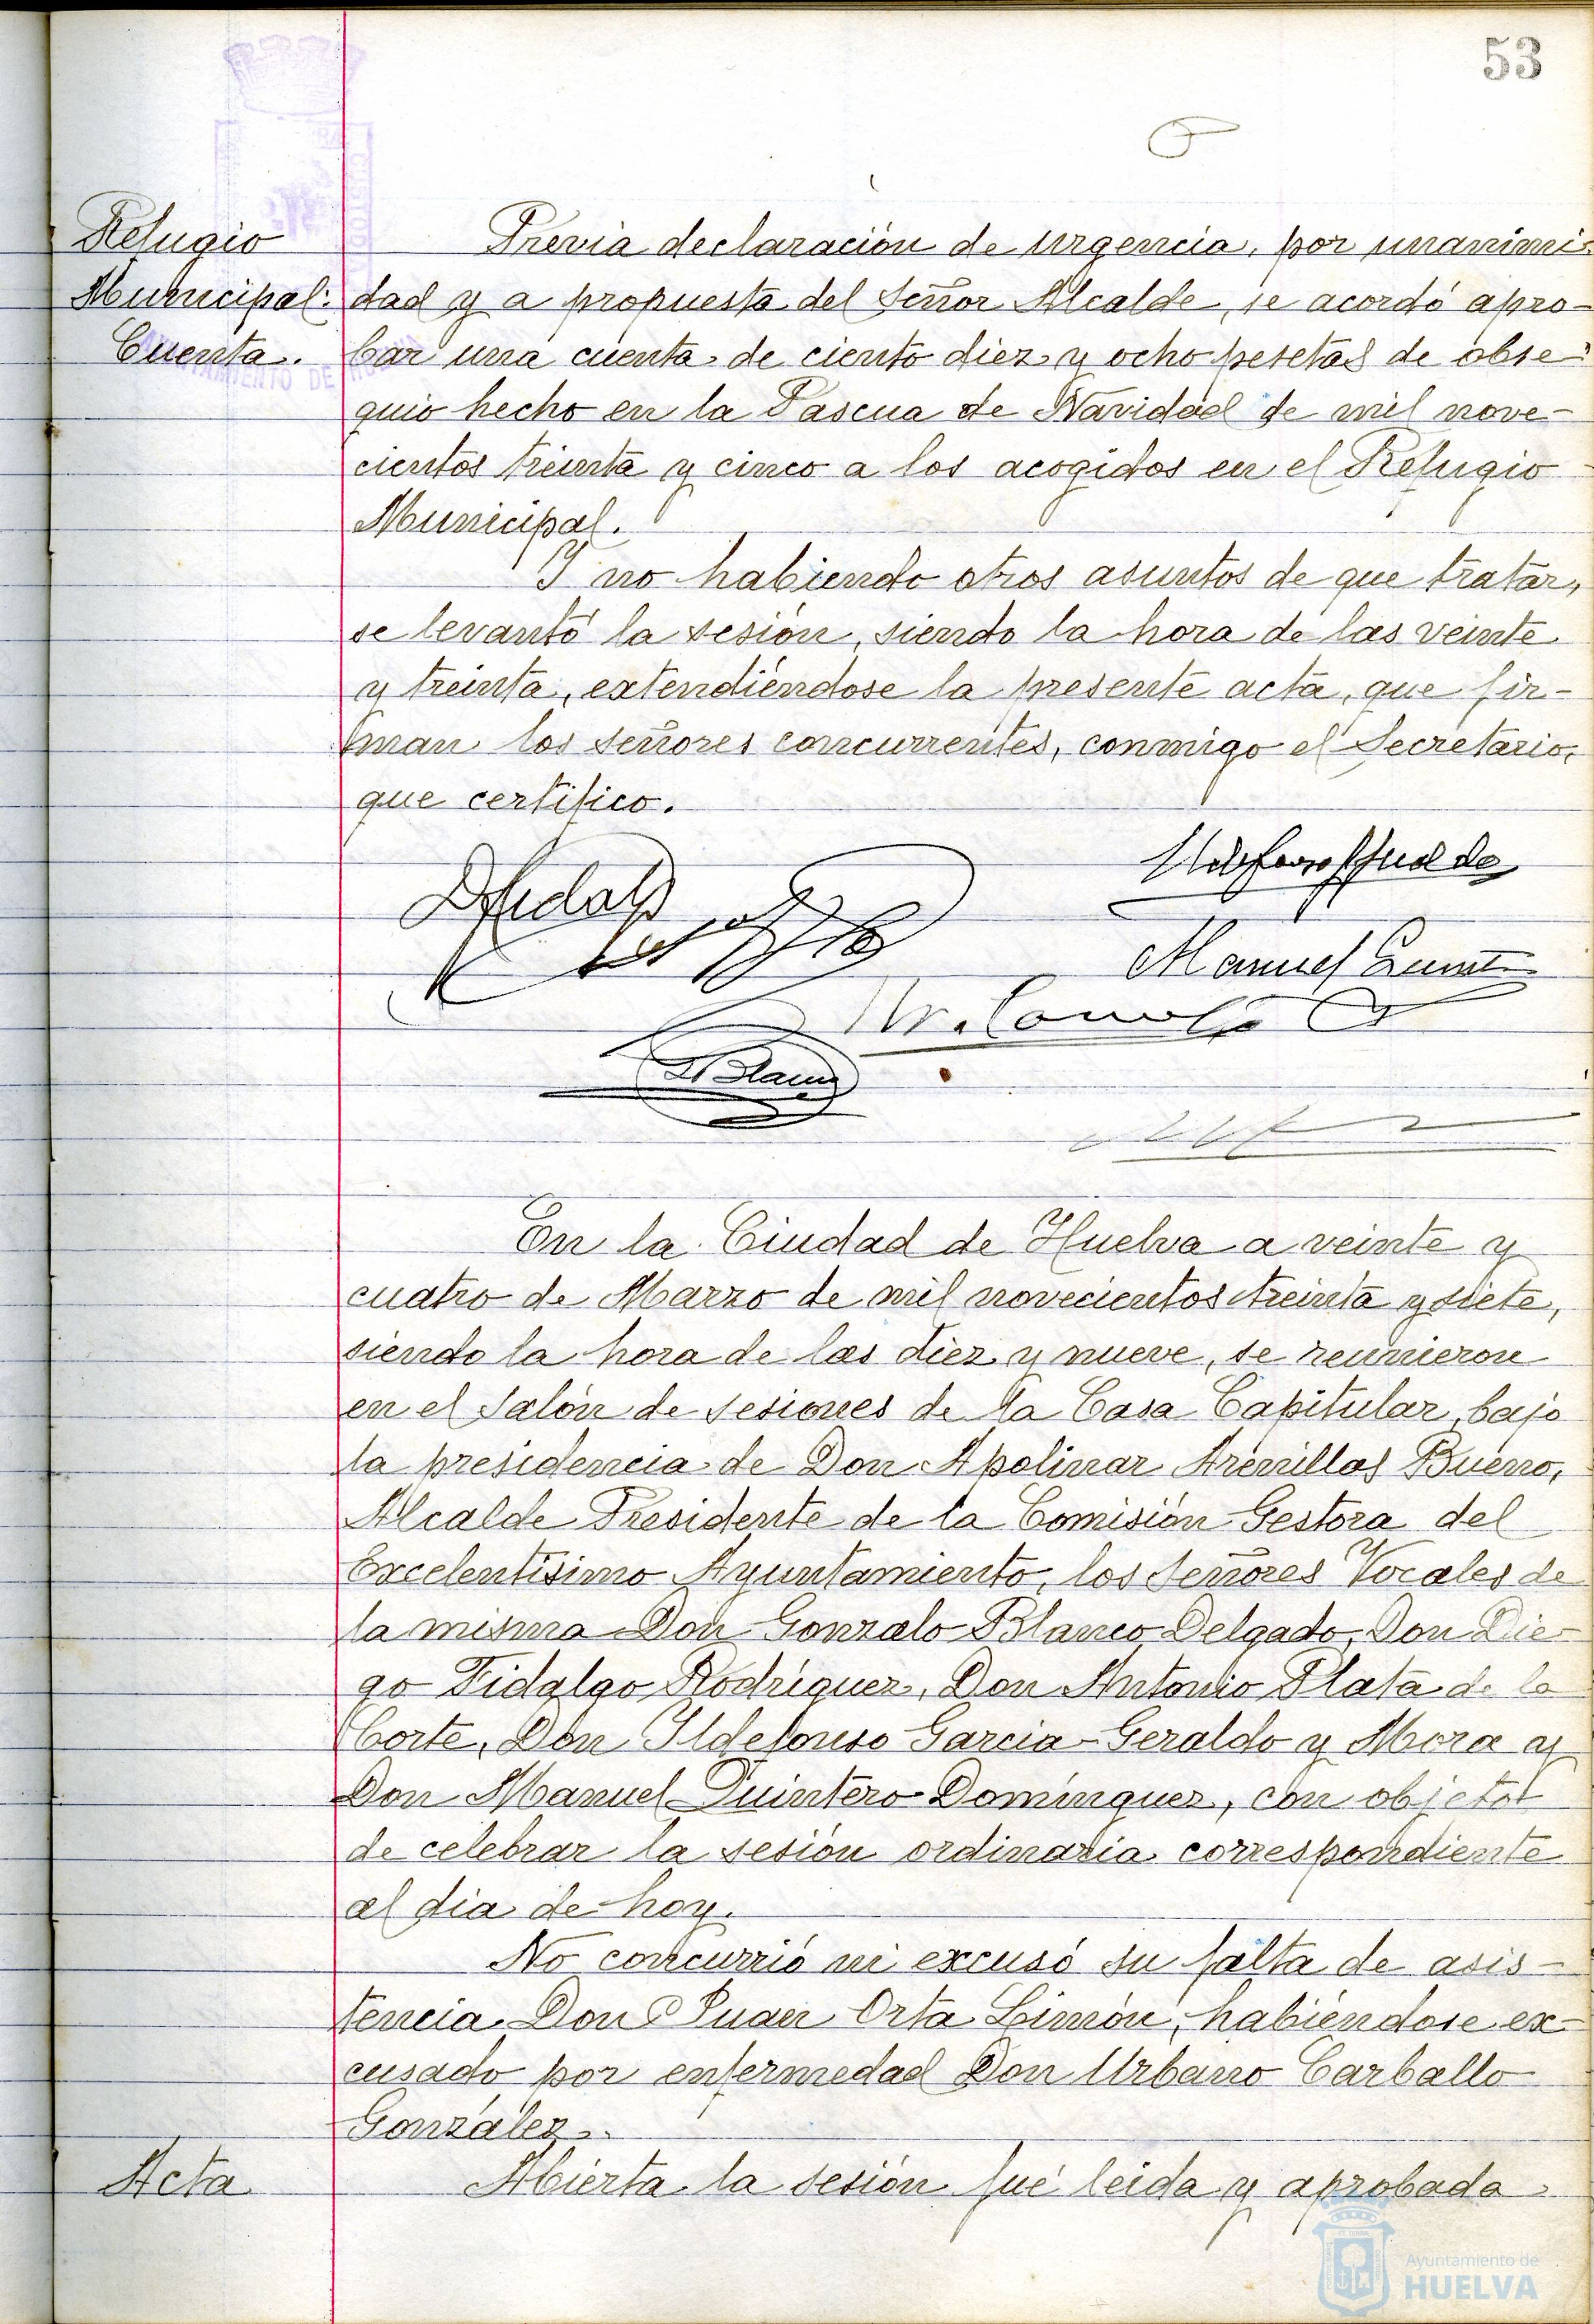 53
Refugio
Municipal:
Cuenta.
Previa declaración de urgencia, por unanimi-
dad y a propuesta del Señor Alcalde, se acordó apro-
bar una cuenta de ciento diez y ocho pesetas de obse-
quio hecho en la Pascua de Navidad de mil nove-
cientos treinta y cinco a los acogidos en el Refugio
Municipal.
Y no habiendo otros asuntos de que tratar,
se levantó la sesión, siendo la hora de las veinte
y treinta, extendiéndose la presente acta, que fir-
man los señores concurrentes, conmigo el Secretario,
que certifico.
Manuel
Blanco
En la Ciudad de Huelva a veinte y
cuatro de Marzo de mil novecientos treinta y siete,
siendo la hora de las diez y nueve, se reunieron
en el Salón de sesiones de la Casa Capitular, bajo
la presidencia de Don Apolinar Arenillas Bueno,
Alcalde Presidente de la Comisión Gestora del
Excelentísimo Ayuntamiento, los Señores Vocales de
la misma Don Gonzalo Blanco Delgado, Don Die-
go Fidalgo Rodríguez, Don Antonio Plata de la
Corte, Don Ildefonso Garcia-Geraldo y Mora y
Don Manuel Quintero Domínguez, con objeto
de celebrar la sesión ordinaria correspondiente
al dia de hoy.
No concurrió ni excusó su falta de asis-
tencia Don Juan Orta Limón, habiéndose ex-
cusado por enfermedad Don Urbano Carballo
González.
Acta
Abierta la sesión fué leida y aprobada
Ayuntamiento de
HUELVA